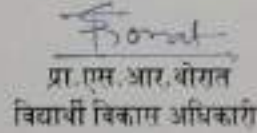 प्रा.एस.आर.थोरात
विद्यार्थी विकास अधिकारी